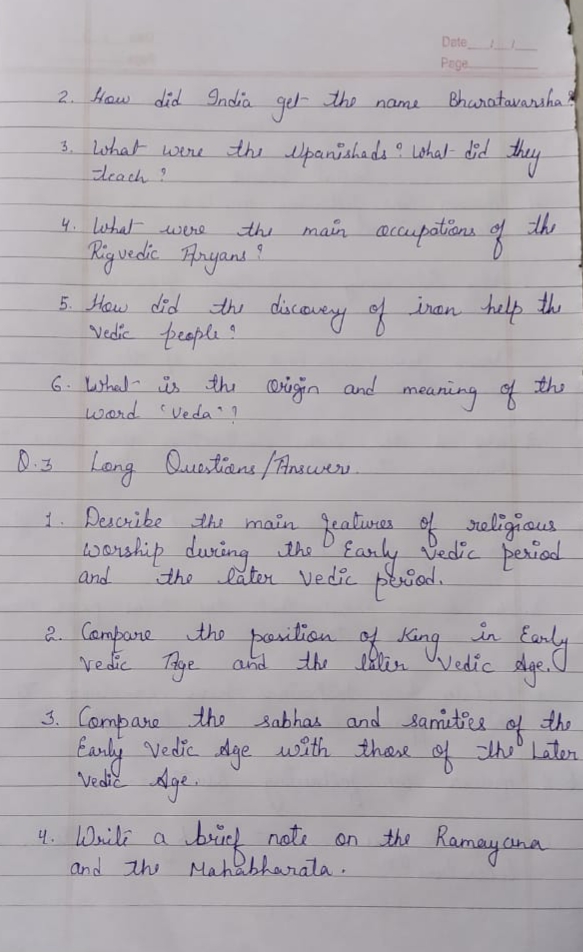 Date / /
Page
2. How did India get the name Bharatavarsha?
3. What were the Upanishads? What did they
teach?
4. What were the main occupations of the
Rigvedic Aryans?
5. How did the discovery of iron help the
Vedic people?
6. What is the origin and meaning of the
word 'Veda'?
Q.3 Long Questions/Answers.
1. Describe the main features of religious
worship during the Early Vedic period
and the later Vedic period.
2. Compare the position of King in Early
Vedic Age and the later Vedic Age.
3. Compare the sabhas and samities of the
Early Vedic Age with those of the Later
Vedic Age.
4. Write a brief note on the Ramayana
and the Mahabharata.